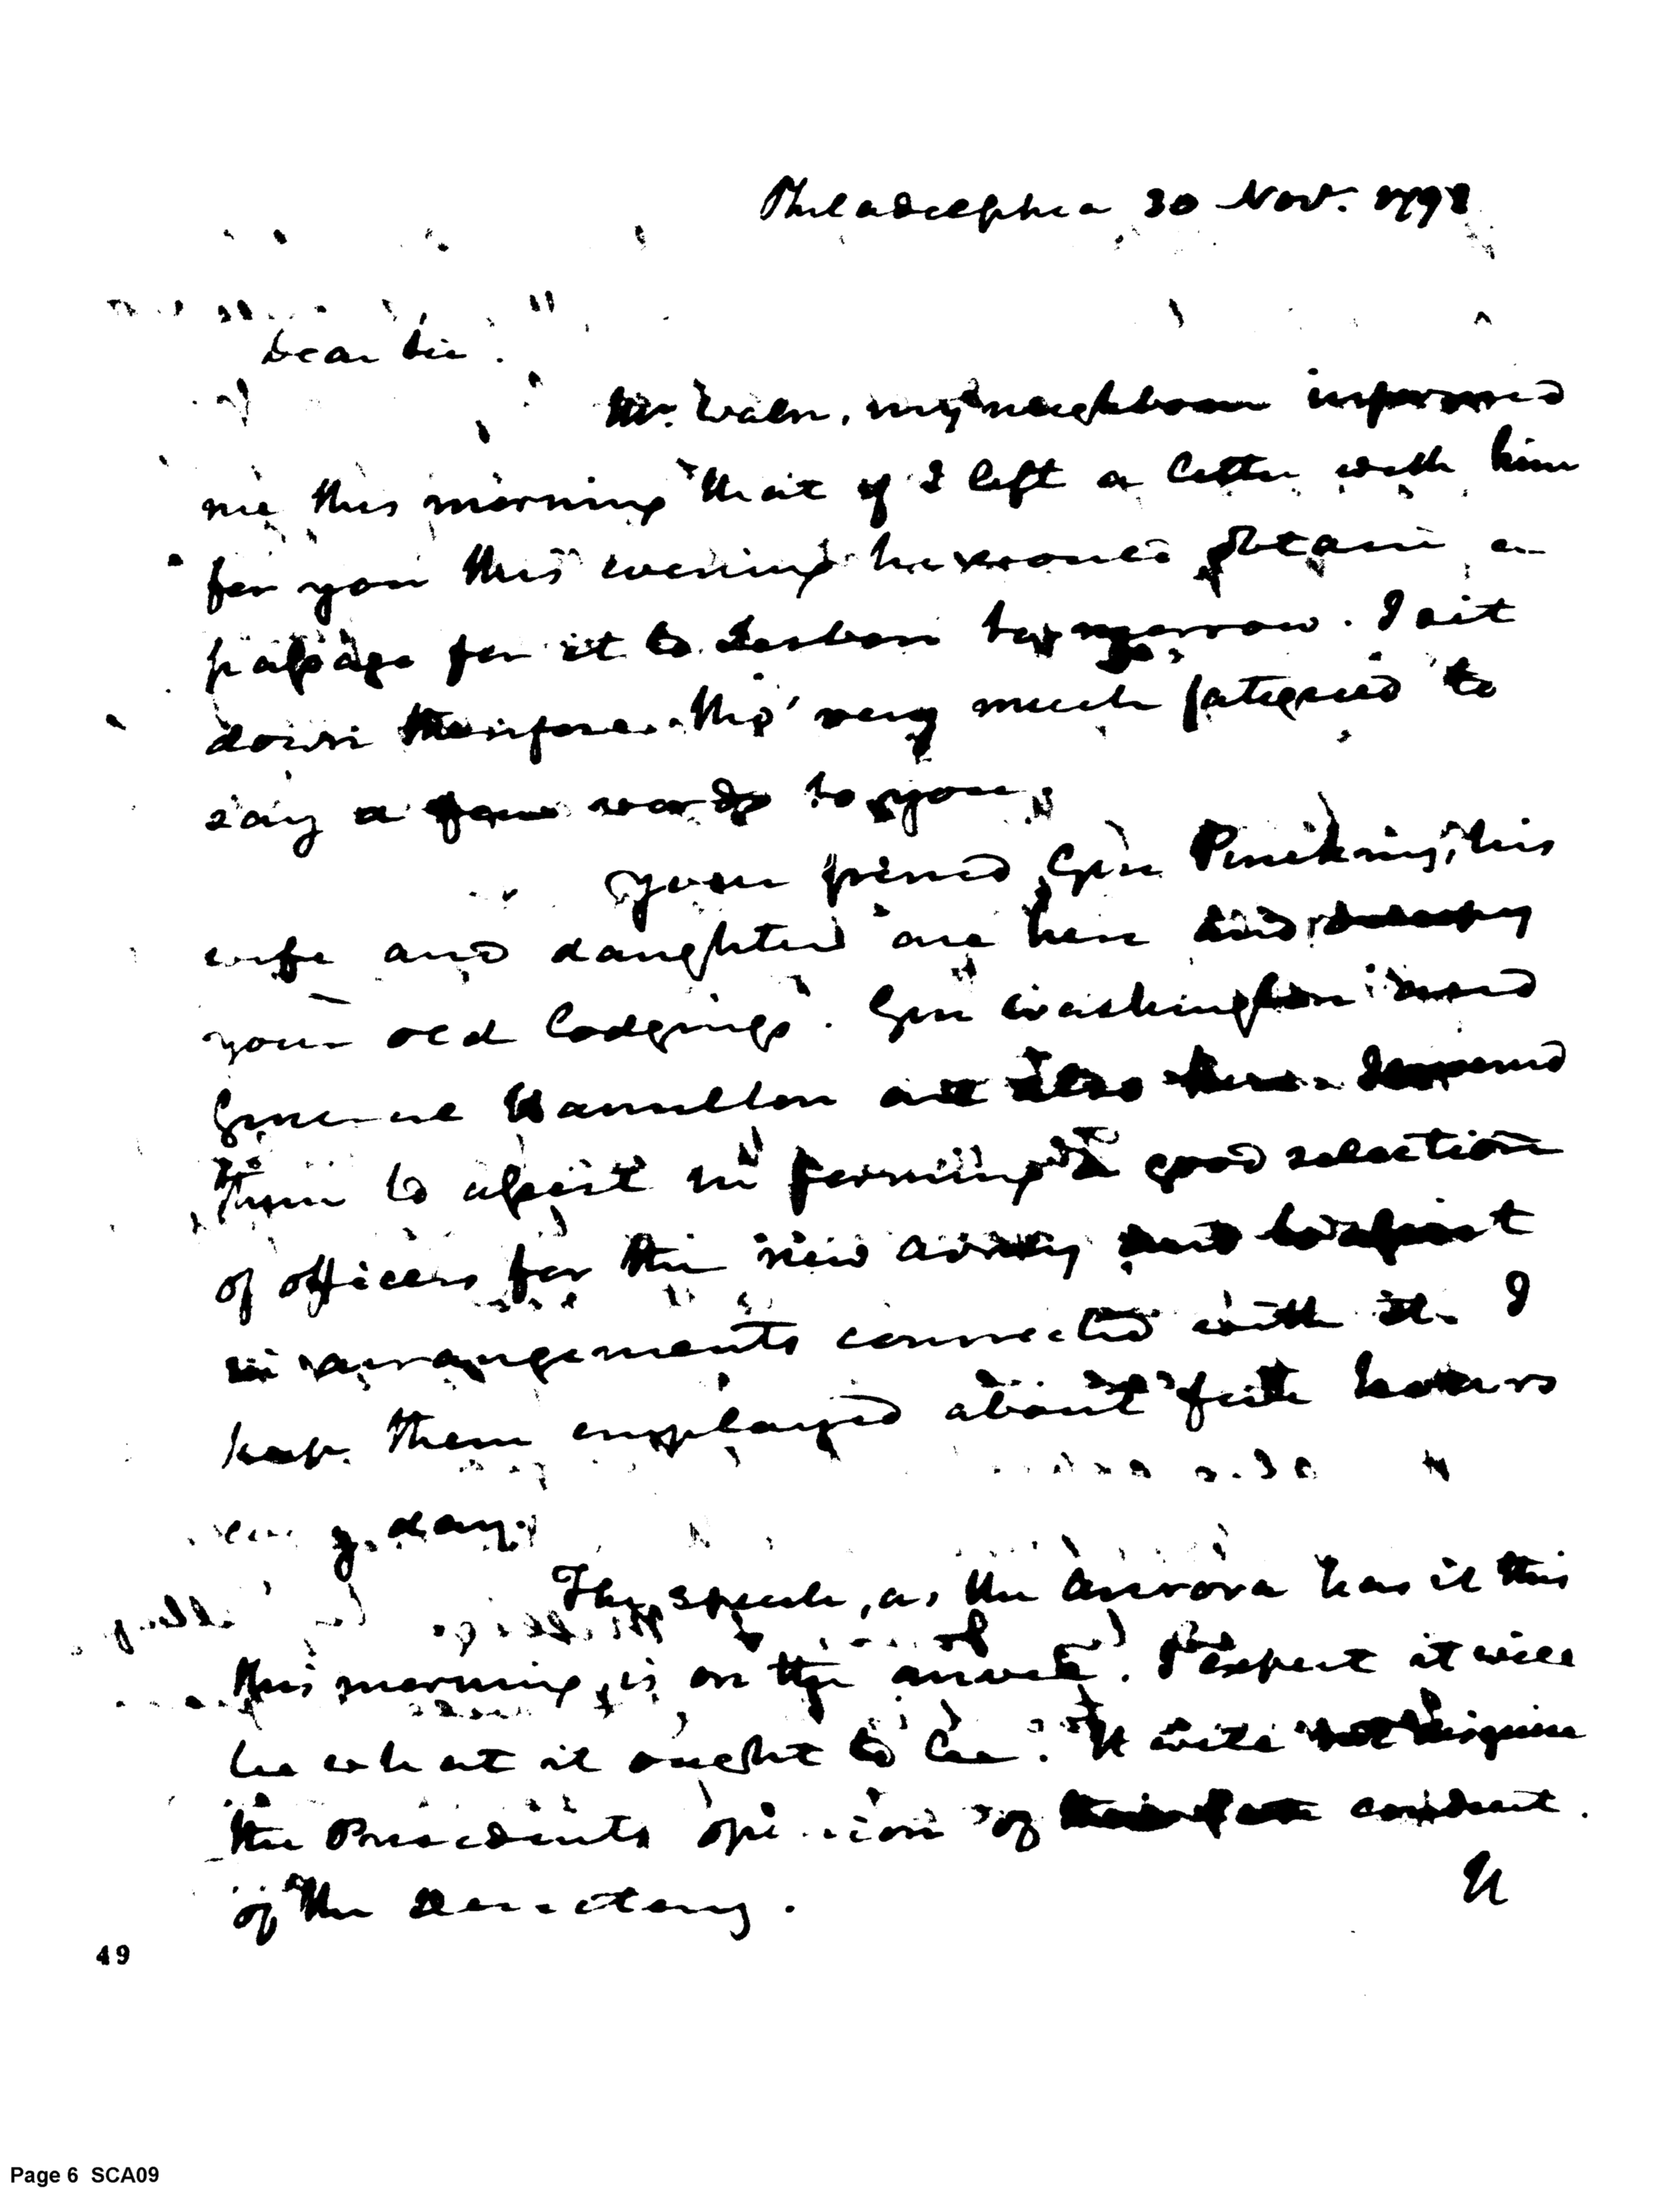 Philadelphia 30 Nov. 1798
Dear Sir.
Mr. Waln, my neighbour informed
me this morning that if I left a letter with him
for you this evening he would obtain a
passage for it to Lisbon to morrow. I sit
down therefore tho' very much fatigued to
say a few words to you.
Your friend Gen Pinckney, his
wife and daughter are here and occupy
your old lodgings. Gen Washington and
General Hamilton are also here. I
them to assist in forming a good selection
of officers for the new army and to assist
in arrangements connected with it. I
keep them employed about five hours
every day.
The speech, as the Aurora has it this
this morning, is on the anvil. I expect it will
be what it ought to be. It will not disguise
the Presidents opinion of the conduct
of the Directory.
It
49
Page 6 SCA09